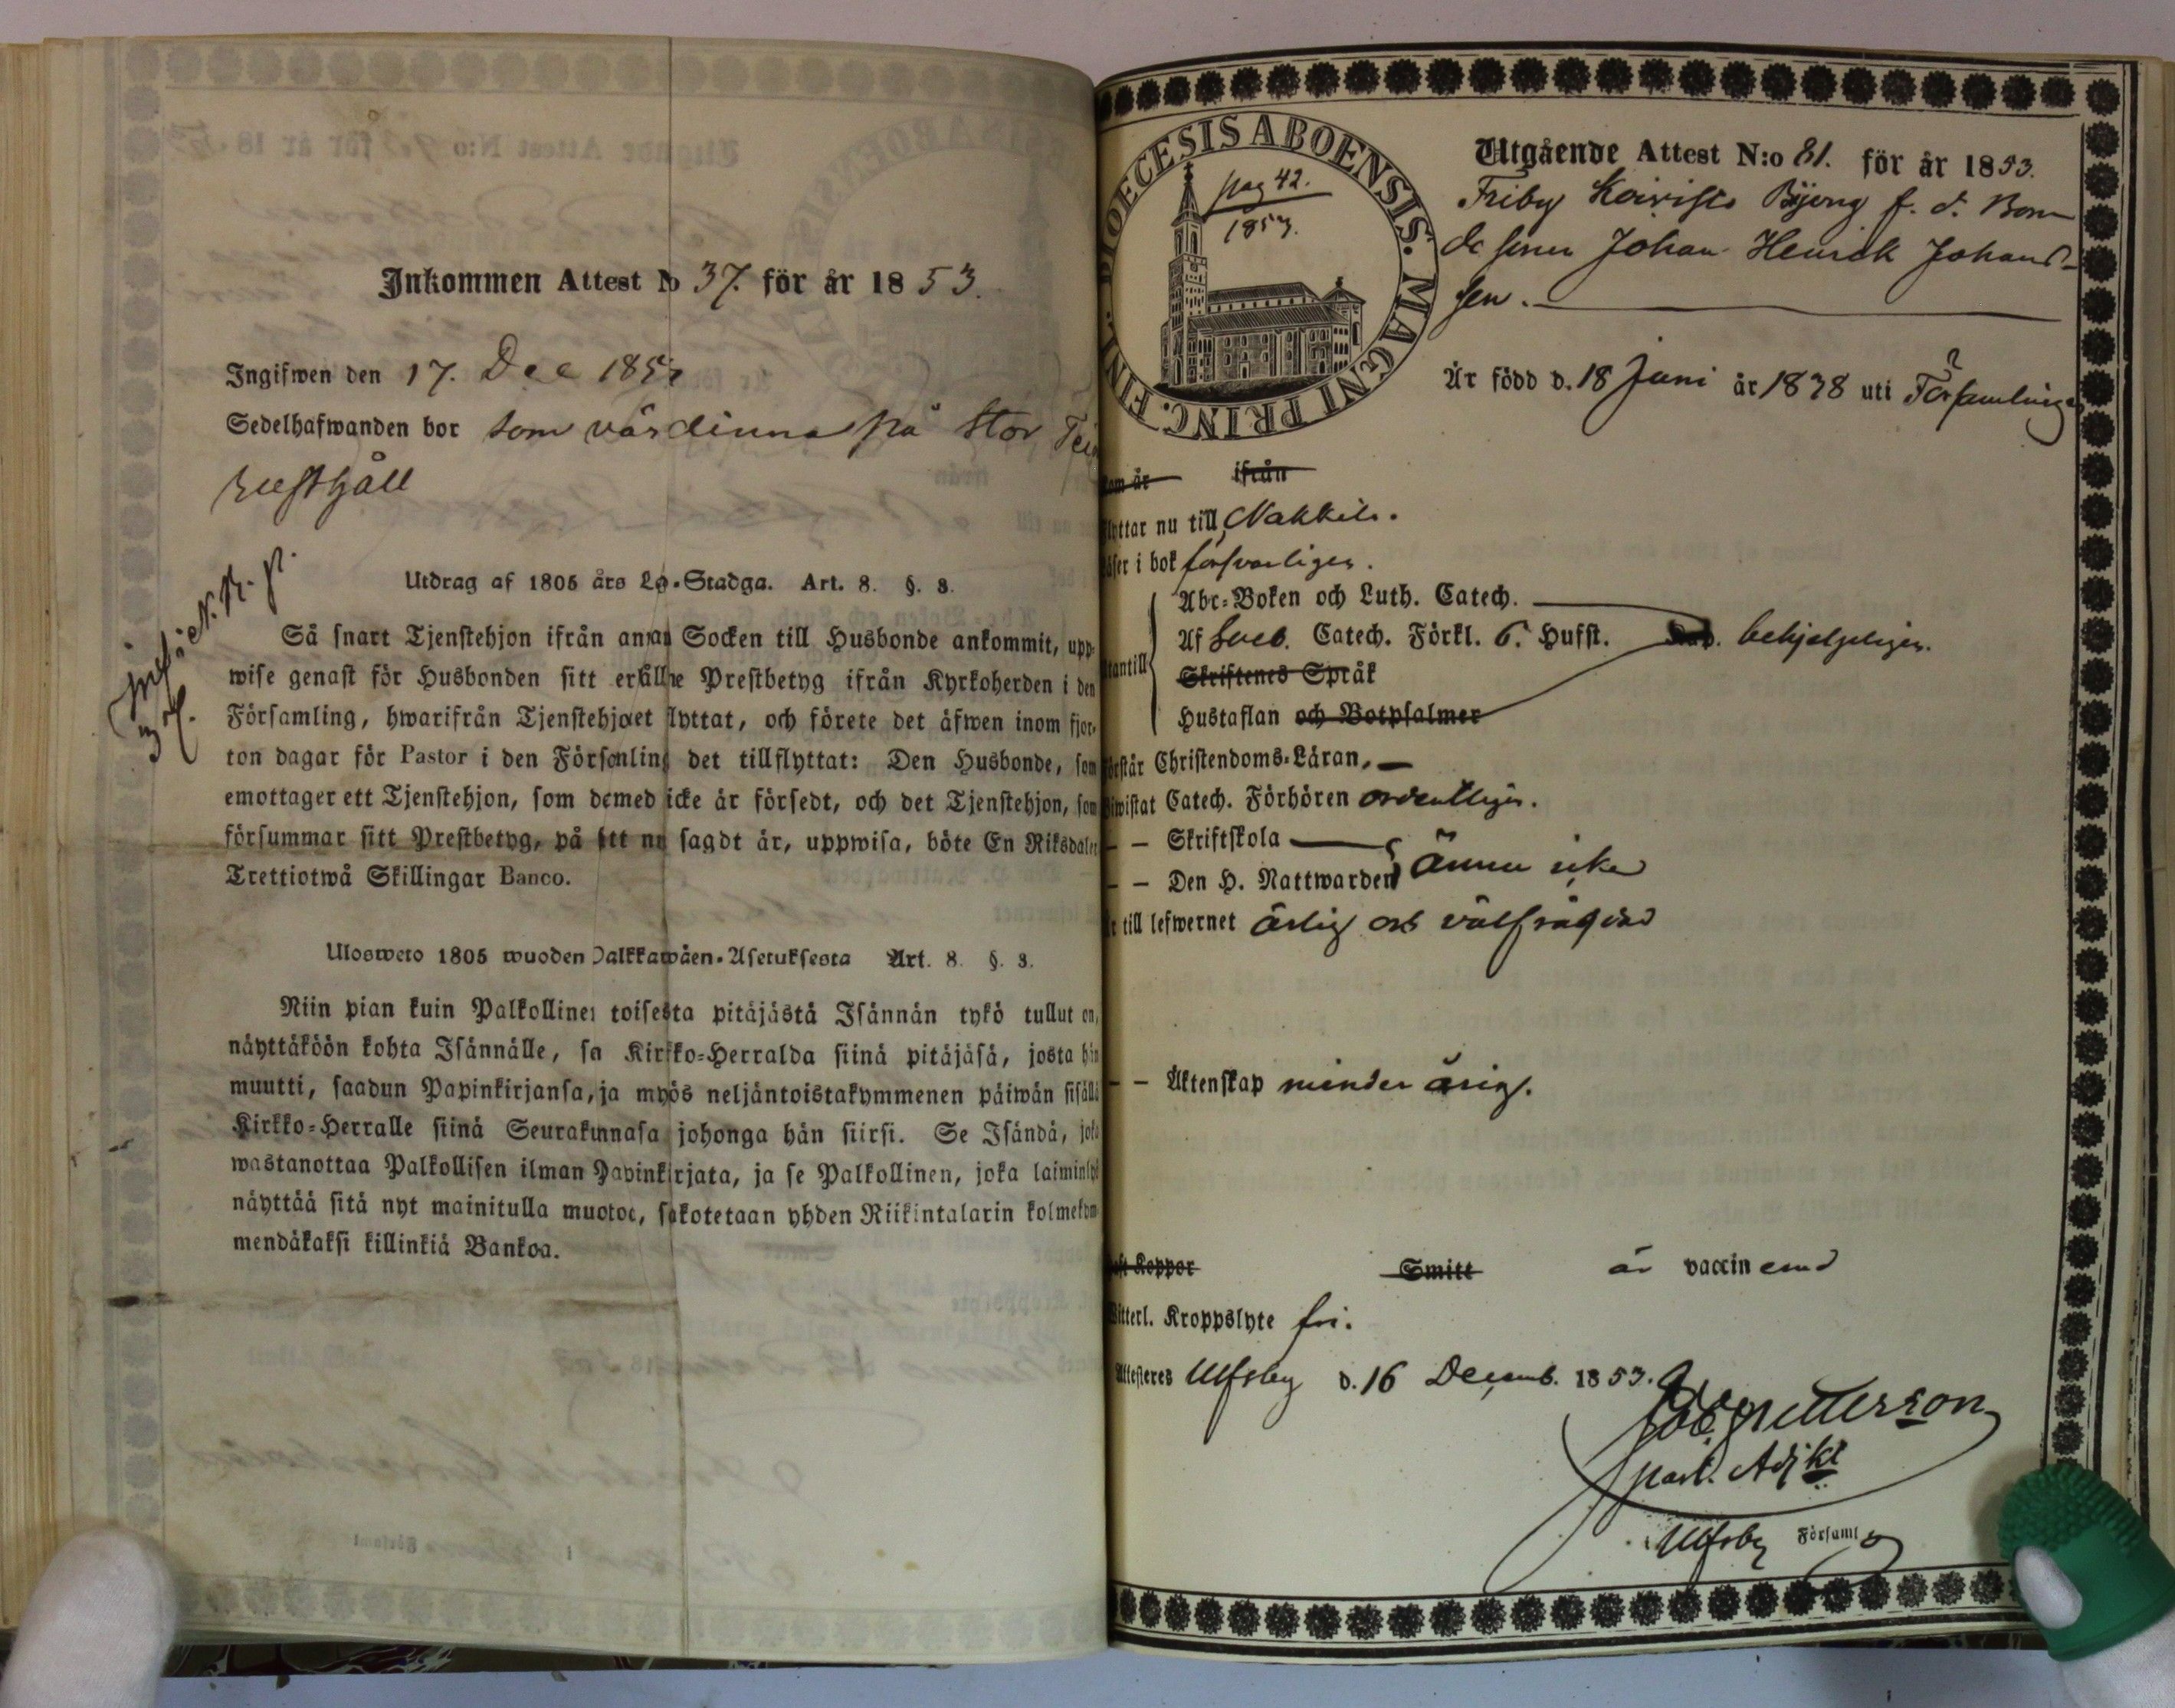 Inkommen Attest No 37. för år 1853.
Ingifwen den 17. Dec 1853
Sedelhafwanden bor som värdinna på Stor
rusthåll
inf: N. R. p.
Utdrag af 1805 års Lego-Stadga. Art. 8. §. 3.
Så snart Tjenstehjon ifrån annan Socken till Husbonde ankommit, upp-
wise genast för Husbonden sitt erhållne Prestbetyg ifrån Kyrkoherden i den
Församling, hwarifrån Tjenstehjonet flyttat, och förete det äfwen inom fjor-
ton dagar för Pastor i den Församling det tillflyttat: Den Husbonde, som
emottager ett Tjenstehjon, som dermed icke är försedt, och det Tjenstehjon, som
försummar sitt Prestbetyg, på sätt nu sagdt är, uppwisa, böte En Riksdaler
Trettiotwå Skillingar Banco.
Ulosweto 1805 wuoden Palkkawäen-Asetuksesta Art. 8. §. 3.
Niin pian kuin Palkollinen toisesta pitäjästä Isännän tykö tullut on,
näyttäköön kohta Isännälle, sen Kirkko-Herralda siinä pitäjäsä, josta hän
muutti, saadun Papinkirjansa, ja myös neljäntoistakymmenen päiwän sisällä
Kirkko-Herralle siinä Seurakunnasa johonga hän siirsi. Se Isändä, joka
wastanottaa Palkollisen ilman Papinkirjata, ja se Palkollinen, joka laiminlyö
näyttää sitä nyt mainitulla muotoa, sakotetaan yhden Riikintalarin kolmekym-
mendäkaksi killinkiä Bankoa.
DIOECESIS ABOENSIS. MAGNI PRINC. FINL.
pag 42.
1853.
Utgående Attest N:o 81. för år 1853.
Friby Koivisto Björng f. d. Bon
de sonen Johan Henrik Johans-
son.
Är född d. 18 Juni år 1838 uti Församlingen
som är ifrån
flyttar nu till Nakkila.
läser i bok försvarligen.
Abc-Boken och Luth. Catech.
Af Sveb. Catech. Förkl. 6. Hufst. behjelpligen.
utantill
Skriftenes Språk
Hustaflan och Botpsalmer
förstår Christendoms-Läran,
biwistat Catech. Förhören ordentligen.
— — Skriftskola
— — Den H. Nattwarden ännu icke
är till lefwernet ärlig och välfrägdad
— — Äktenskap minder årig.
haft Koppor Smitt är vaccinerad
Witterl. Kroppslyte fri.
Attesteres Ulfsby d. 16 Decemb. 1853.
Petterson
past. Adjkt
Ulfsby Församl